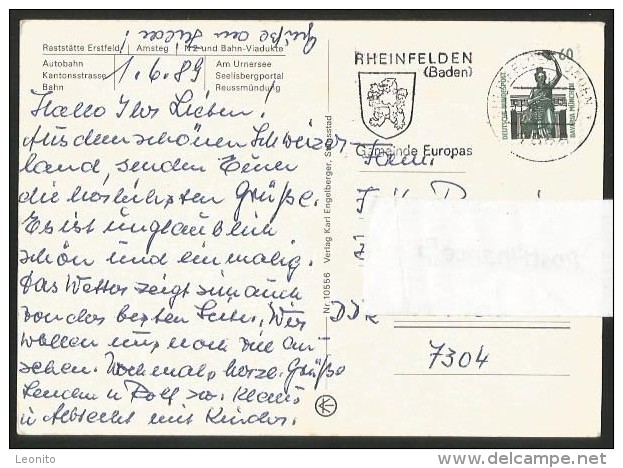 Grüße an
Raststätte Erstfeld | Amsteg | N 2 und Bahn-Viadukte
Autobahn
Kantonsstrasse
Bahn
Am Urnersee
Seelisbergportal
Reussmündung
1.6.89
Hallo Ihr Lieben!
Aus dem schönen Schweizer-
land, senden Euch
die herzlichsten Grüße.
Es ist unglaublich
schön und einmalig.
Das Wetter zeigt sich auch
von der besten Seite. Wir
wollen uns noch die an-
sehen. Nochmals herzl. Grüße
senden u Rolf Klaus
u Albrecht mit Kinder.
Nr. 10556 Verlag Karl Engelberger, Stansstad
RHEINFELDEN
(Baden)
Gemeinde Europas
60
DEUTSCHE BUNDESPOST
BAVARIA MÜNCHEN
Fam.
DDR
7304
© Leliorto
www.delcampe.net